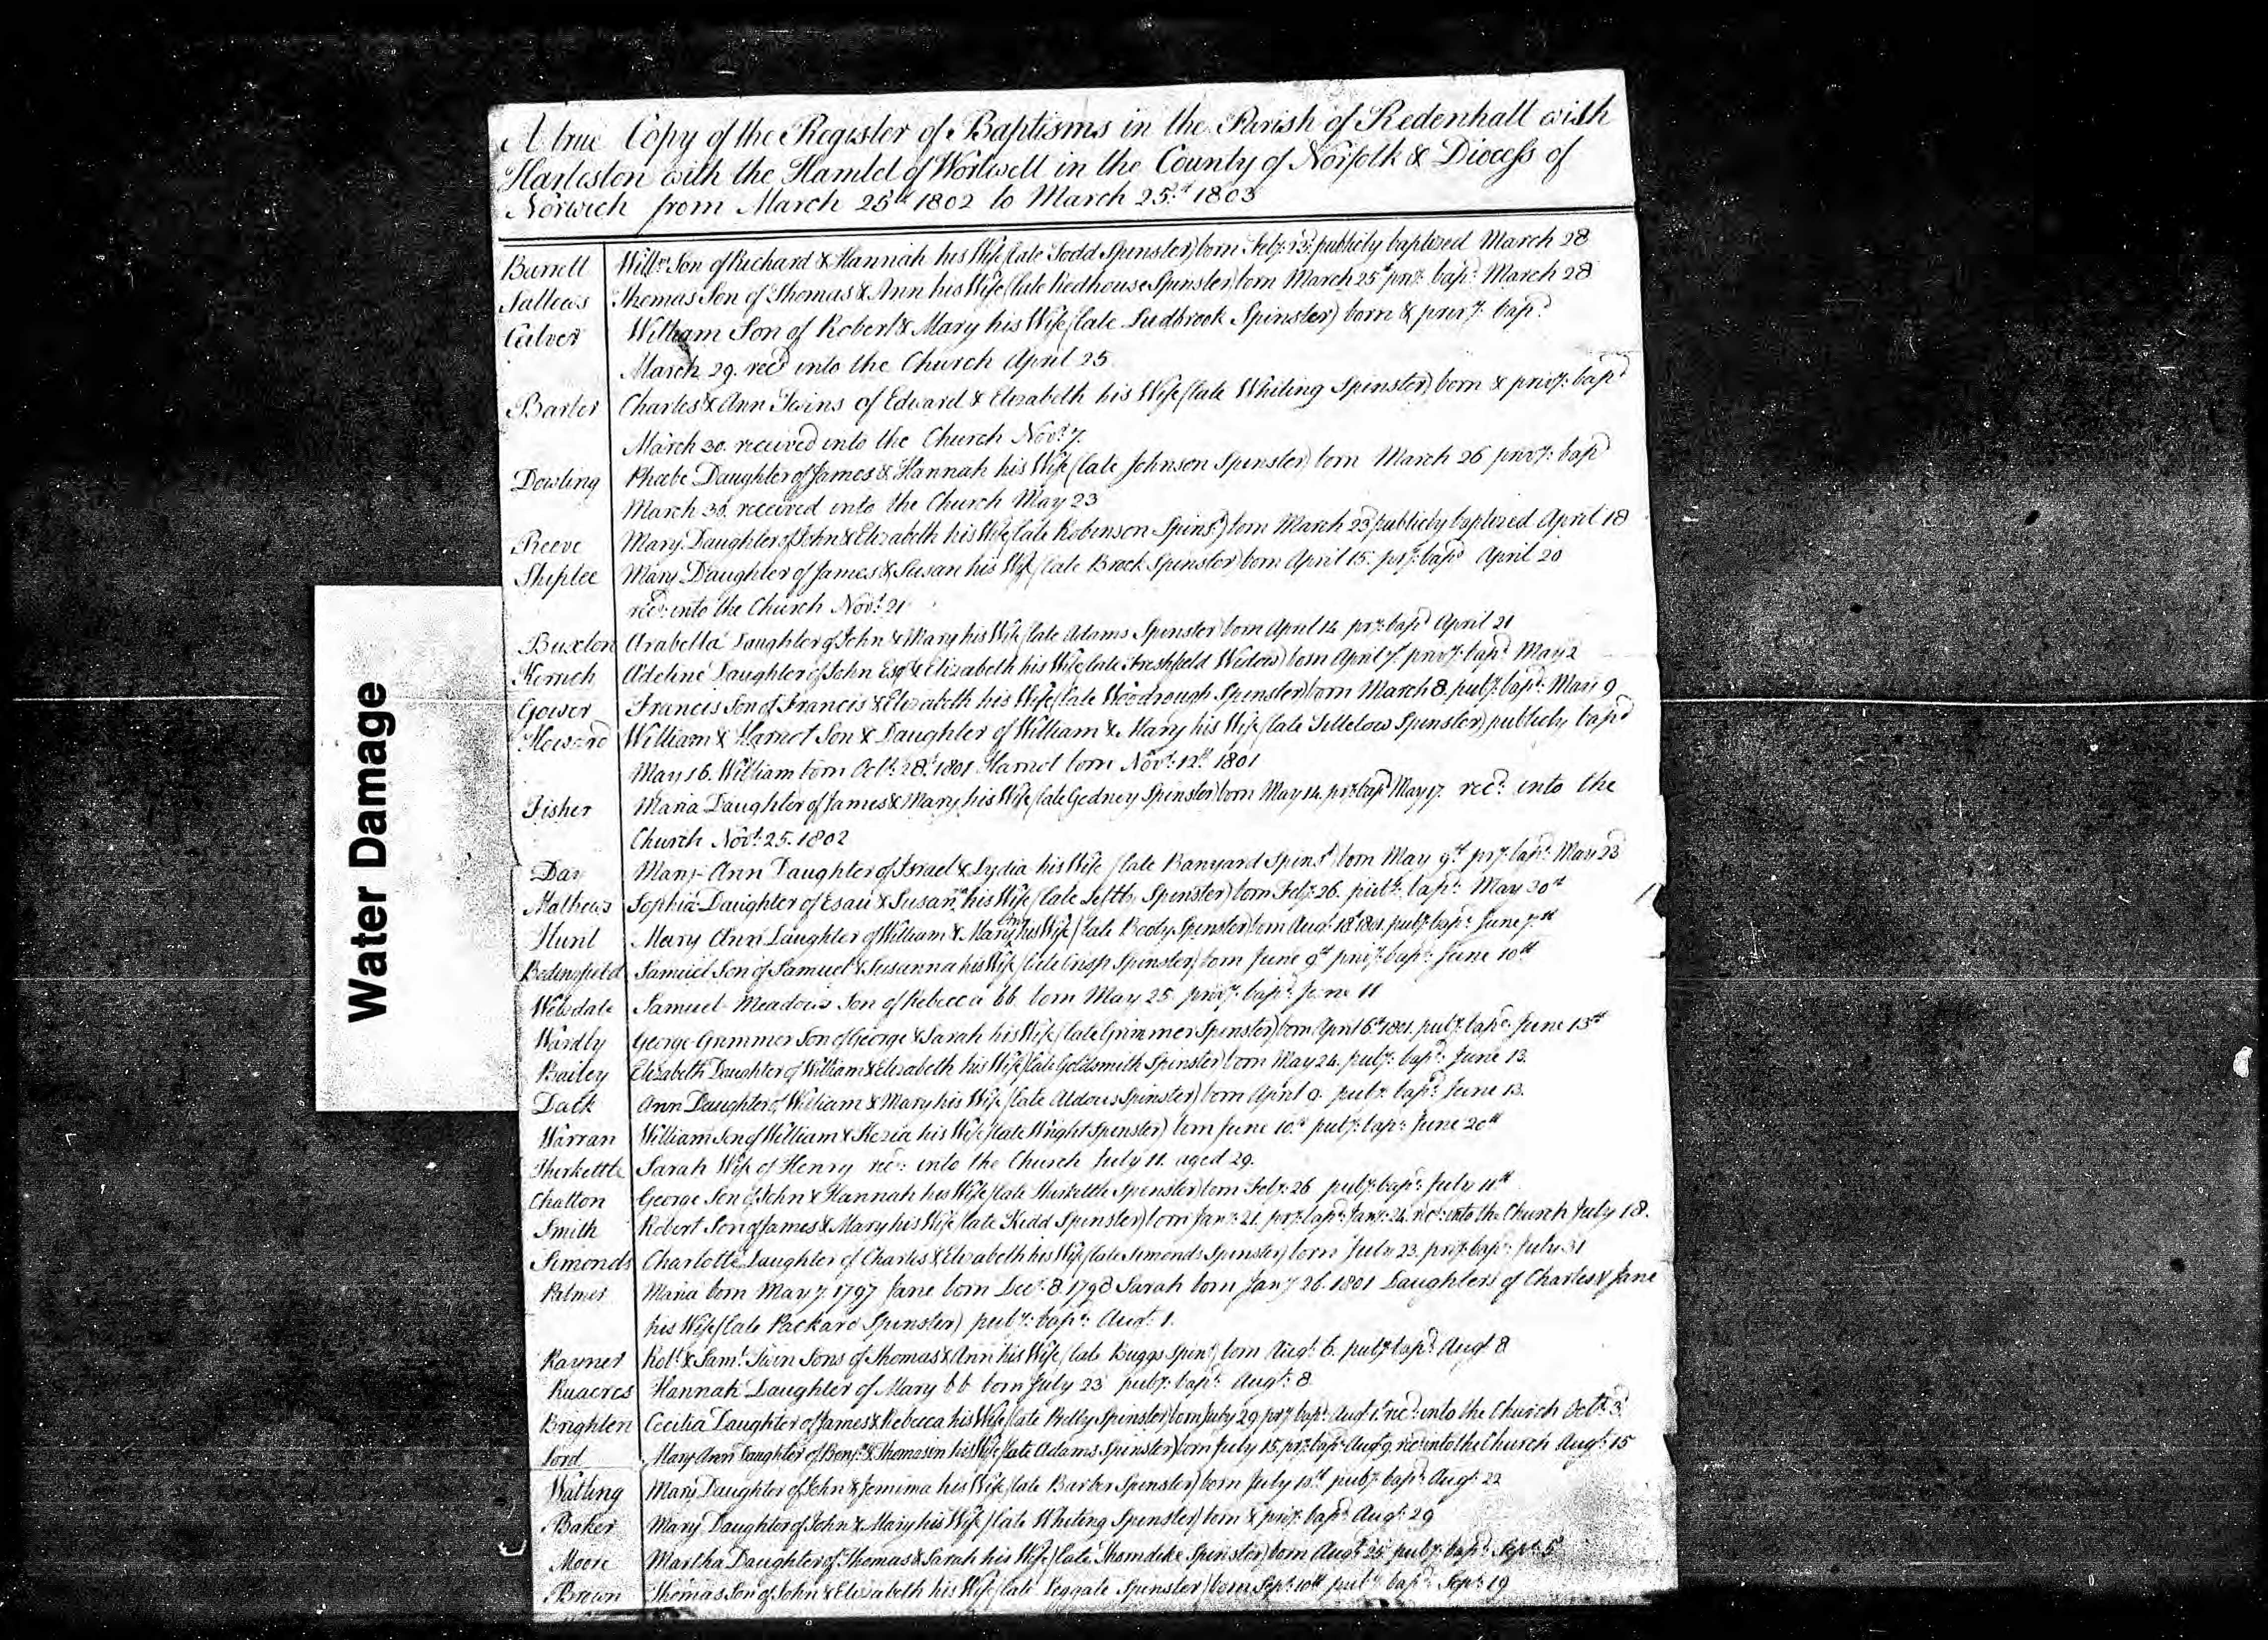 A true Copy of the Register of Baptisms in the Parish of Redenhall with
Harleston with the Hamlet of Wortwell in the County of Norfolk & Diocess of
Norwich from March 25th 1802 to March 25th 1803
Burrell Willm Son of Richard & Hannah his Wife (late Todd Spinster) born Feby 23 publicly baptized March 28
Sallows Thomas Son of Thomas & Ann his Wife (late Redhouse Spinster) born March 25th privy. bapd. March 28
Culver William Son of Robert & Mary his Wife (late Sudbrook Spinster) born & privy. bapd
March 29. recd into the Church April 25
Barber Charles & Ann Twins of Edward & Elizabeth his Wife (late Whiting Spinster) born & privy: bapd
March 30. received into the Church Novr. 7.
Dowling Phœbe Daughter of James & Hannah his Wife (late Johnson Spinster) born March 26 privy: bapd
March 30. received into the Church May 23
Reeve Mary Daughter of John & Elizabeth his Wife (late Robinson Spinsr.) born March 23 publicly baptized April 18
Shiplee Mary Daughter of James & Susan his Wife (late Brock Spinster) born April 15. pry. bapd April 20
recd: into the Church Novr. 21
Buxton Arabella Daughter of John & Mary his Wife (late Adams Spinster) born April 14 pry. bapd April 21
Kerrich Adeline Daughter of John Esqr. & Elizabeth his Wife (late Freshfield Widow) born April 7. privy: bapd. May 2
Gower Francis Son of Francis & Elizabeth his Wife (late Woodrough Spinster) born March 8. puby. bapd. May 9
Howard William & Harriot Son & Daughter of William & Mary his Wife (late Tillelow Spinster) publicly bapd
May 16. William born Octr. 28th. 1801 Harriot born Novr. 12th 1801
Fisher Maria Daughter of James & Mary his Wife (late Gedney Spinster) born May 14. pry. bapd May 17. recd: into the
Church Novr. 25. 1802
Day Mary-Ann Daughter of Israel & Lydia his Wife (late Banyard Spinsr) born May 9th pry. bapd. May 23
Mathews Sophia Daughter of Esau & Susanna his Wife (late Spinster) born Feby. 26. puby. bapd. May 30th
Hunt Mary Ann Daughter of William & Mary Ann his Wife (late Body Spinster) born Augt. 18 1801. puby. bapd. June 7th
Bedingfield Samuel Son of Samuel & Susanna his Wife (late Crisp Spinster) born June 9th privy. bapd. June 10th
Welsdale Samuel Meadows Son of Rebecca bb. born May 25. privy. bapd. June 11
Wardly George Grimmer Son of George & Sarah his Wife (late Grimmer Spinster) born April 6th 1801. puby. bapd: June 13th
Bailey Elizabeth Daughter of William & Elizabeth his Wife (late Goldsmith Spinster) born May 24. puby: bapd: June 13.
Dack Ann Daughter of William & Mary his Wife (late Aldous Spinster) born April 9. puby. bapd: June 13.
Warran William Son of William & Kezia his Wife (late Wright Spinster) born June 10th puby: bapd: June 20th
Thirkettle Sarah Wife of Henry recd: into the Church July 11. aged 29.
Chatton George Son of John & Hannah his Wife (late Thirkettle Spinster) born Feby. 26 puby: bapd: July 11th
Smith Robert Son of James & Mary his Wife (late Kidd Spinster) born Jany. 21. pry. bapd. Jany. 24. recd: into the Church July 18.
Simonds Charlotte Daughter of Charles & Elizabeth his Wife (late Simonds Spinster) born July 23. privy. bapd: July 31
Palmer Maria born May 7. 1797 Jane born Decr. 8. 1798 Sarah born Jany 26. 1801 Daughters of Charles & Jane
his Wife (late Packard Spinster) puby: bapd: Augt. 1.
Rayner Robt. & Saml. Twin Sons of Thomas & Ann his Wife (late Buggs Spinr.) born Augt. 6. puby. bapd. Augt 8
Ruacres Hannah Daughter of Mary bb born July 23 puby: bapd: Augt. 8.
Brighten Cecilia Daughter of James & Rebecca his Wife (late Spinster) born July 29. pry. bapd. Augt. 1. recd: into the Church Octr. 3.
Lord Mary Ann Daughter of Benjn. & Thomasin his Wife (late Adams Spinster) born July 15. pry. bapd. Augt 9. recd into the Church Augt. 15
Watling Mary Daughter of John & Jemima his Wife (late Barber Spinster) born July 13th puby. bapd. Augt. 22
Baker Mary Daughter of John & Mary his Wife (late Whiting Spinster) born & privy: bapd. Augt. 29
Moore Martha Daughter of Thomas & Sarah his Wife (late Thorndike Spinster) born Augt. 25 puby. bapd. Sept. 5
Brown Thomas Son of John & Elizabeth his Wife (late Leggate Spinster) born Sept. 10th puby. bapd. Sept. 19
Water Damage